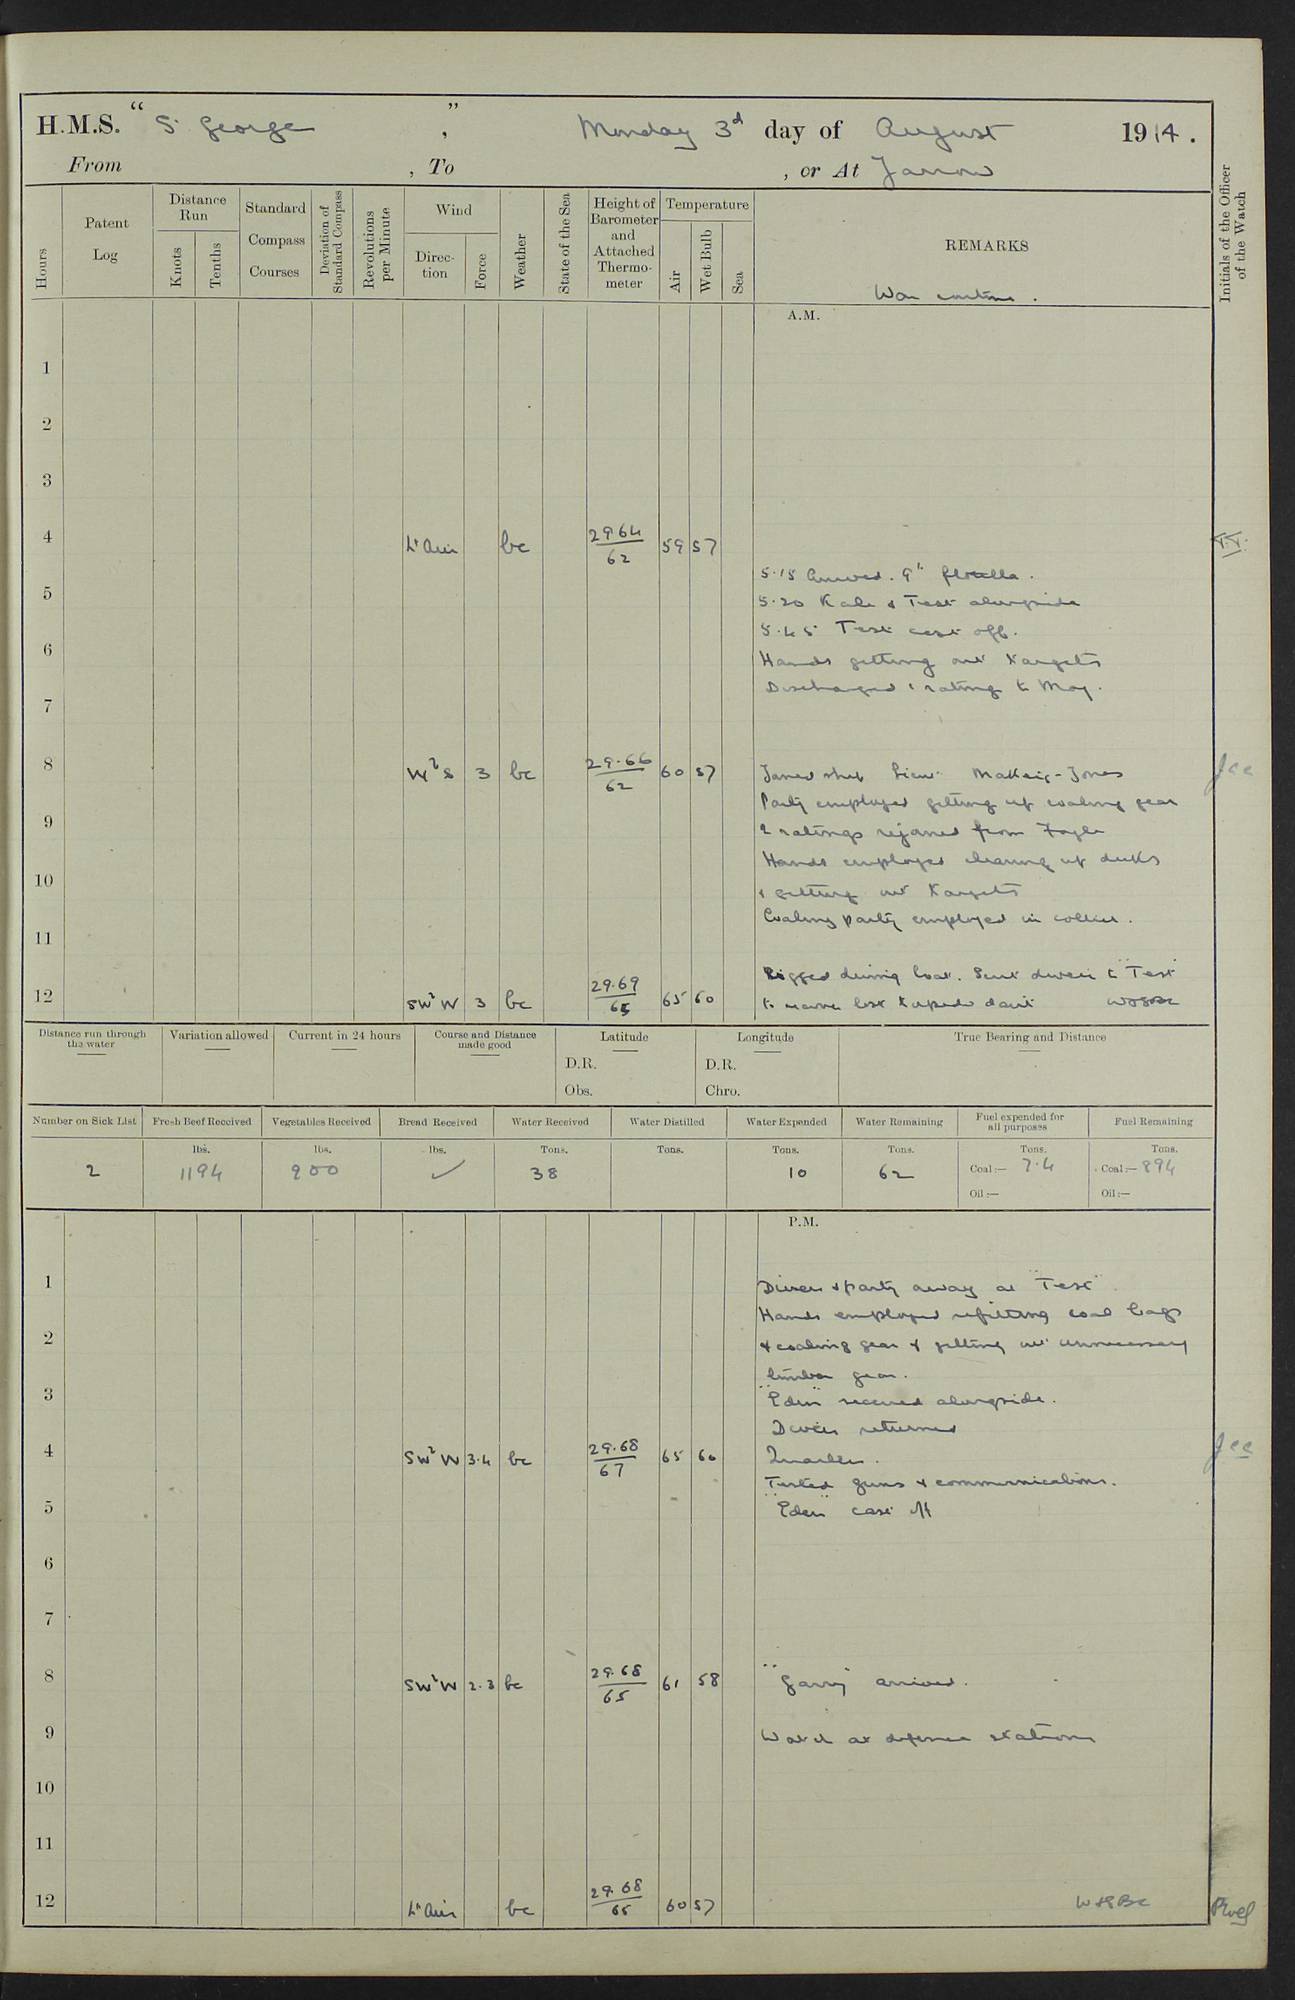 H.M.S. "St George", Monday 3d day of August 1914.
From , To , or At Jarrow
Hours
Patent Log
Distance Run
Knots
Tenths
Standard Compass Courses
Deviation of Standard Compass
Revolutions per Minute
Wind
Direction
Force
Weather
State of the Sea
Height of Barometer and Attached Thermometer
Temperature
Air
Wet Bulb
Sea
REMARKS
Initials of the Officer of the Watch
War routine.
A.M.
1
2
3
4 Lt Air bc 29.64/62 59 57
5.15 Arrived. 9th flotilla.
5
5.20 Kale & Test alongside
5.45 Test cast off.
6
Hands getting out targets
Discharged 1 rating to Moy.
7
8 WbS 3 bc 29.66/62 60 57 Joined ship Lieut Makeig-Jones
Party employed getting up coaling gear
9
2 ratings rejoined from Foyle
Hands employed clearing up decks
10
& getting out targets
Coaling party employed in collier.
11
Rigged diving boat. Sent diver to "Test"
12 SWbW 3 bc 29.69/65 65 60 to recover lost torpedo davit
Distance run through the water
Variation allowed
Current in 24 hours
Course and Distance made good
Latitude
D.R.
Obs.
Longitude
D.R.
Chro.
True Bearing and Distance
Number on Sick List
Fresh Beef Received
Vegetables Received
Bread Received
Water Received
Water Distilled
Water Expended
Water Remaining
Fuel expended for all purposes
Fuel Remaining
lbs. lbs. lbs. Tons. Tons. Tons. Tons. Tons. Tons.
2 1194 900 ✓ 38 10 62 Coal:— 7.4 Coal:— 894
Oil:— Oil:—
P.M.
1 Diver & party away at "Test"
Hands employed refitting coal bags
2
& coaling gear & getting out unnecessary
timber gear.
3
"Eden" secured alongside.
Divers returned
4 SWbW 3.4 bc 29.68/67 65 60 Quarters. Jcc
Tested guns & communications.
5 "Eden" cast off
6
7
8 SWbW 2.3 bc 29.68/65 61 58 "Garry" arrived.
9 Watch at defence stations
10
11
12 Lt Air bc 29.68/65 60 57